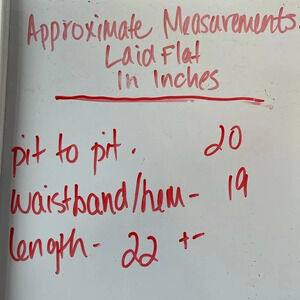 Approximate Measurements.
Laid Flat
In Inches
pit to pit. 20
waistband/hem- 19
length- 22 +-